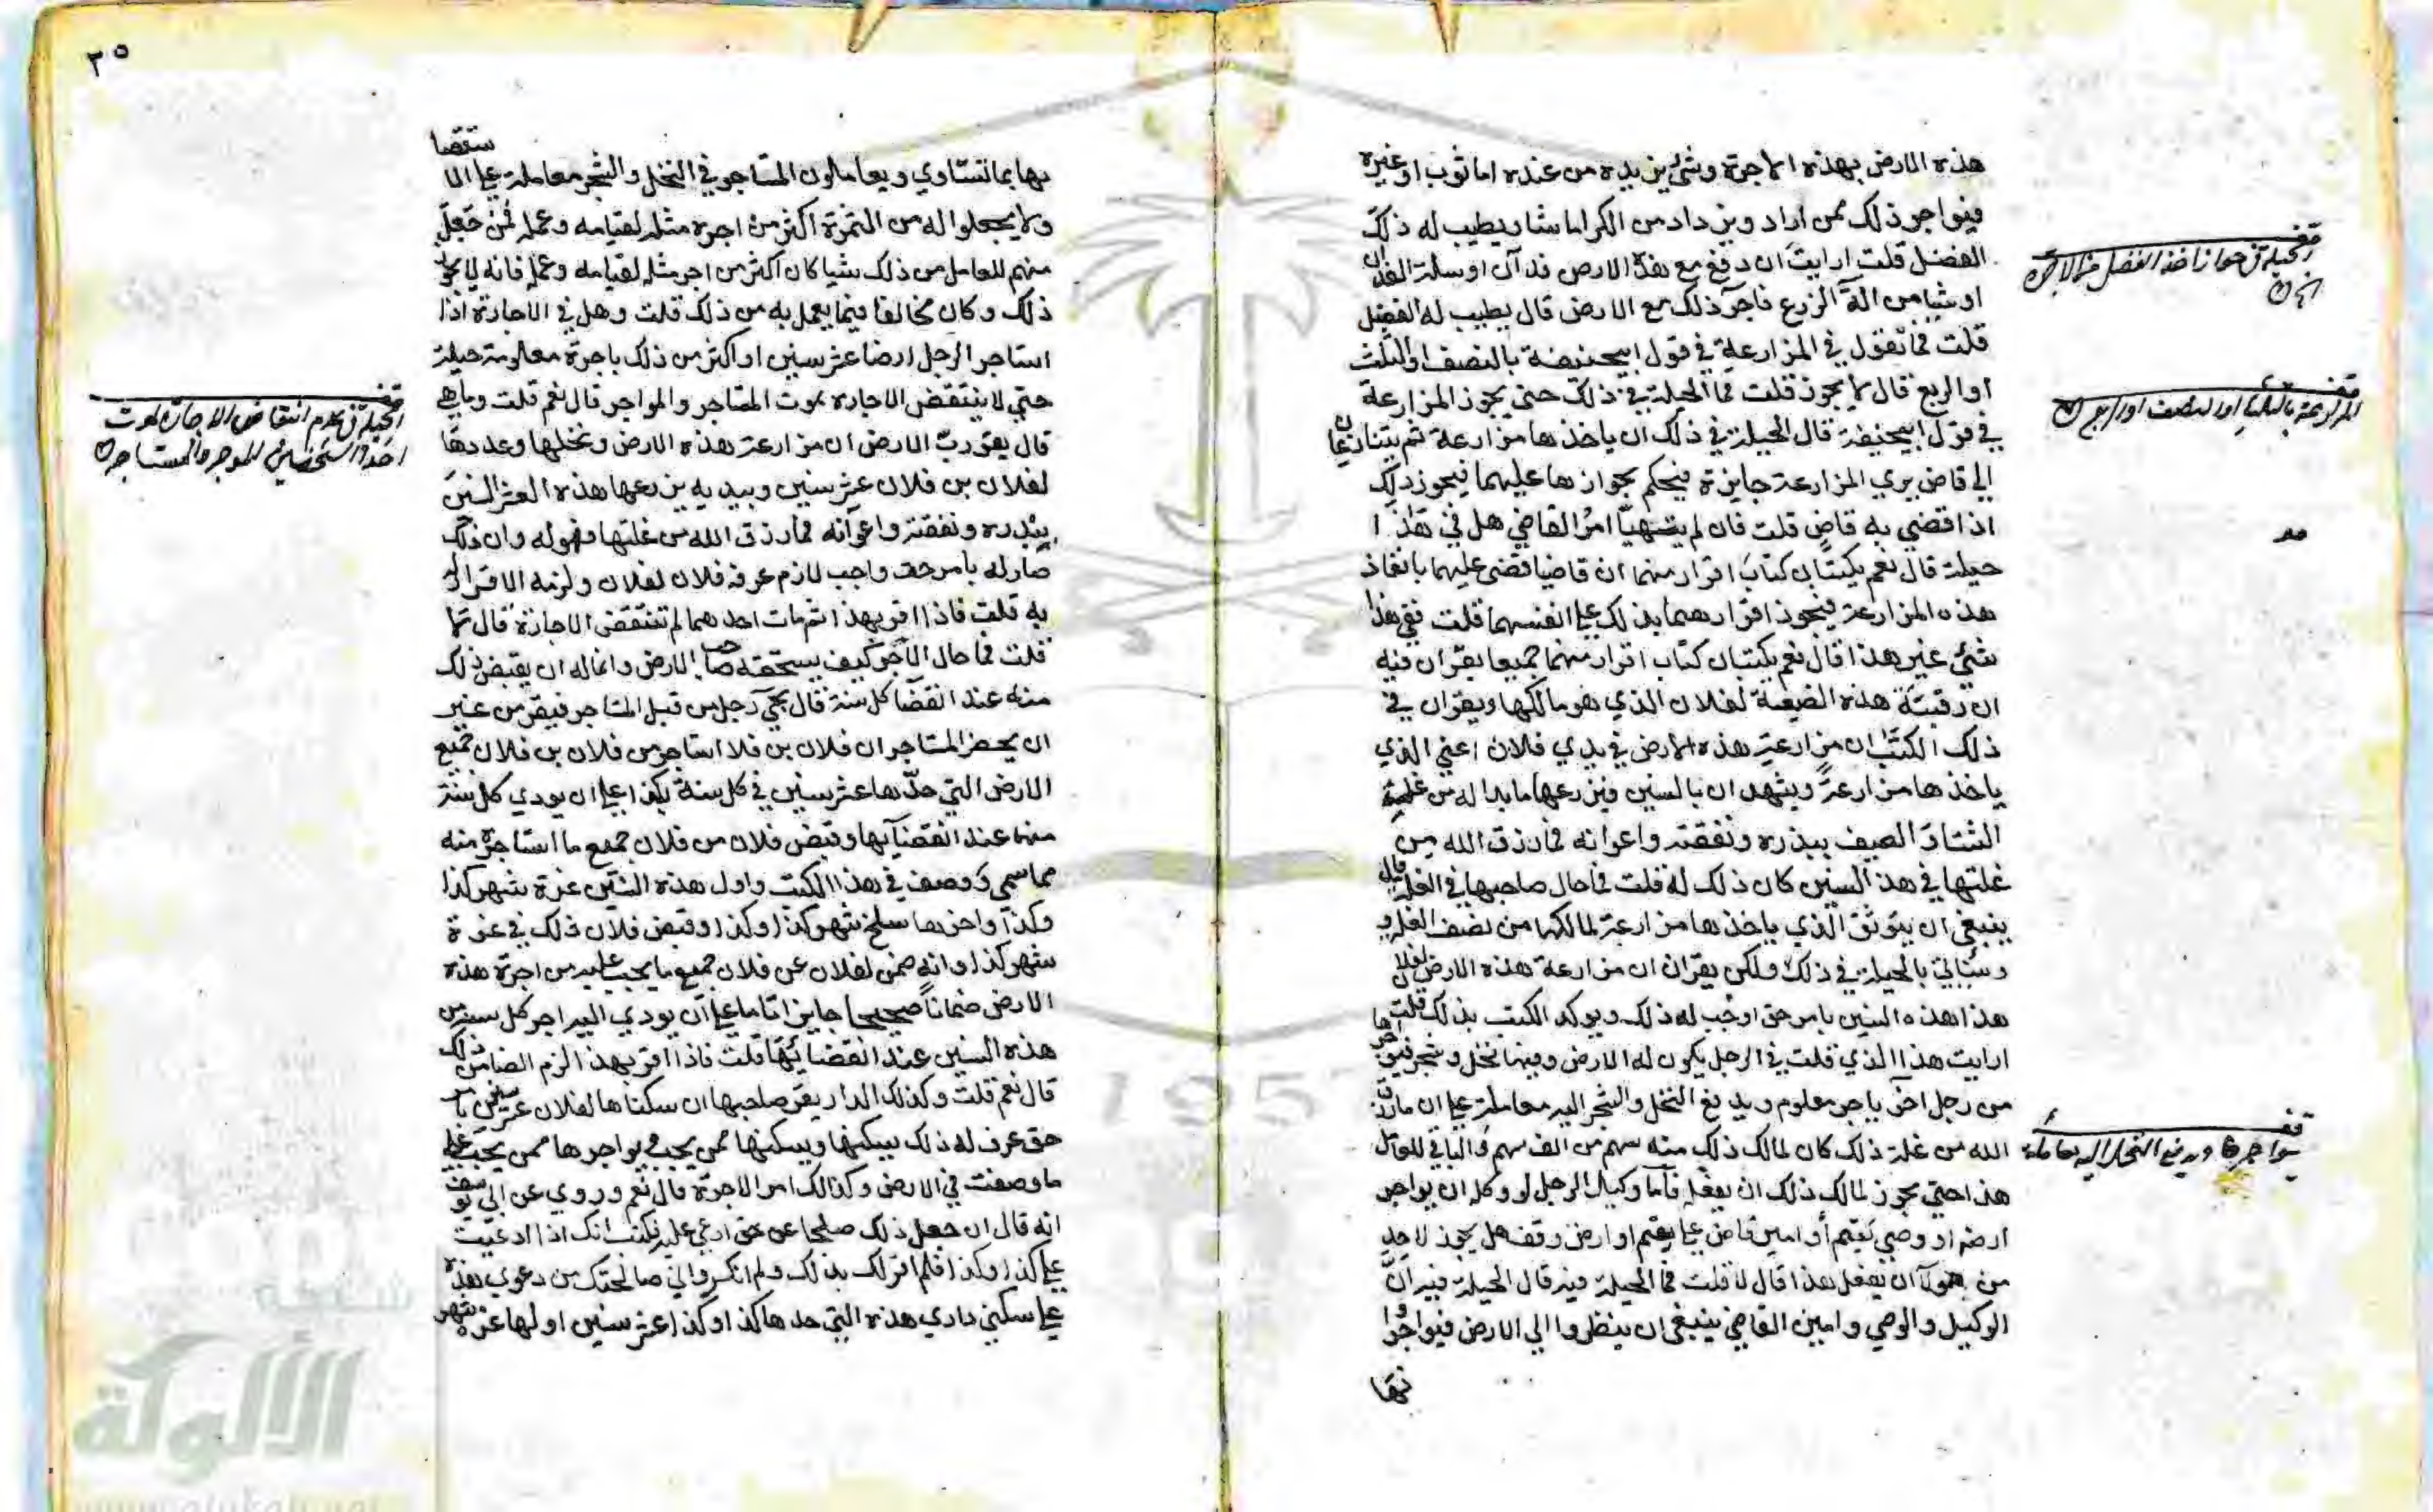 هذه الارض بهذه الاجرة وشئ يزيده من عنده اما ثوب او غيره
فيواجر ذلك ممن اراد ويزداد من الكرا ما شا ويطيب له ذلك
الفضل قلت ارايت ان دفع مع هذه الارض فدان او سلة الفدان
او شيا من الة الزرع فاجر ذلك مع الارض قال يطيب له الفضل
قلت فما تقول في المزارعة في قول ابيحنيفة بالنصف او الثلث
او الربع قال لا يجوز قلت فما الحيلة في ذلك حتى يجوز المزارعة
في قول ابيحنيفة قال الحيلة في ذلك ان ياخذها مزارعة ثم يتنازعان
الي قاض يري المزارعة جايزة فيحكم بجوازها عليهما فيجوز ذلك
اذا قضي به قاض قلت فان لم يتهيا امر القاضي هل في هذا
حيلة قال نعم يكتبان كتاب اقرار منهما ان قاضيا قضى عليهما بانفاذ
هذه المزارعة فيجوز اقرارهما بذلك علي انفسهما قلت ففي هذا
شئ غير هذا قال نعم يكتبان كتاب اقرار منهما جميعا يقران فيه
ان رقبة هذه الضيعة لفلان الذي هو مالكها ويقران في
ذلك الكتاب ان مزارعة هذه الارض في يدي فلان اعني الذي
ياخذها مزارعة ويشهدان بالسنين فيزرعها ما بدا له من غلة
الشتا والصيف ببذره ونفقته واعوانه فما رزق الله من
غلتها في هذه السنين كان ذلك له قلت فما حال صاحبها في الغلة قال
ينبغي ان يتوثق الذي ياخذها مزارعة لمالكها من نصف الغلة و
وسياتي بالحيلة في ذلك ولكن يقران ان مزارعة هذه الارض لفلان
هذا هذه السنين بامر حق اوجب له ذلك ويوكد الكتب بذلك قلت
ارايت هذا الذي قلت في الرجل يكون له الارض وفيها نخل وشجر فيواجرها
من رجل اخر باجر معلوم ويدفع النخل والشجر اليه معاملة علي ان ما رزق
الله من غلة ذلك كان لمالك ذلك منه سهم من الف سهم والباقي للعامل
هذا حتى يجوز لمالك ذلك ان يفعله فاما وكيل الرجل لو وكله ان يواجر
ارضه او وصي يتيم أو امين قاض علي يتيم او ارض وقف هل يجوز لاحد
من هولا ان يفعل هذا قال لا قلت فما الحيلة فيه قال الحيلة فيه ان
الوكيل والوصي وامين القاضي ينبغي ان ينظروا الي الارض فيواجروا
نها
قف
الحيلة في جواز اخذ الفضل من الاجرة
قف
المزارعة بالثلث او النصف او الربع
قف
يواجرها ويدفع النخل اليه معاملة
٣٥
ستقصا
بها بما تستاوي ويعاملون المستاجر في النخل والشجر معاملة علي الا
ولا يجعلوا له من الثمرة اكثر من اجرة مثله لقيامه وعمله فمن جعل
منهم للعامل من ذلك شيا كان اكثر من اجر مثله لقيامه وعمله فانه لا يجوز
ذلك وكان مخالفا فيما يعمل به من ذلك قلت وهل في الاجارة اذا
استاجر الرجل ارضا عشر سنين او اكثر من ذلك باجرة معلومة حيلة
حتي لا ينتقض الاجاره بموت المستاجر والمواجر قال نعم قلت وما هي
قال يقر رب الارض ان مزارعة هذه الارض ونخلها وعددها
لفلان بن فلان عشر سنين وبيديه يزرعها هذه العشر السنين
ببذره ونفقته واعوانه فما رزق الله من غلتها فهو له وان ذلك
صار له بامر حق واجب لازم عرفه فلان لفلان ولزمه الاقرار له
به قلت فاذا اقر بهذا ثم مات احدهما لم تنتقض الاجارة قال لا
قلت فما حال الاجر كيف يستحقه صاحب الارض وانما له ان يقبض ذلك
منه عند انقضا كل سنة قال يجي رجل من قبل المستاجر فيقر من غير
ان يحضر المستاجر ان فلان بن فلا استاجر من فلان بن فلان جميع
الارض التي حدها عشر سنين في كل سنة بكذا علي ان يودي كل سنة
منها عند انقضايها وقبض فلان من فلان جميع ما استاجره منه
مما سمي ووصف في هذا الكتب واول هذه السنين غرة شهر كذا
وكذا واخرها سلخ شهر كذا وكذا وقبض فلان ذلك في غرة
شهر كذا وانه ضمن لفلان عن فلان جميع ما يجب عليه من اجرة هذه
الارض ضمانا صحيحا جايزا تاما علي ان يودي اليه اجر كل سنة من
هذه السنين عند انقضائها قلت فاذا اقر بهذا لزم الضامن ذلك
قال نعم قلت وكذلك الدار يقر صاحبها ان سكناها لفلان عشر سنين بامر
حق عرف له ذلك يسكنها ويسكنها من يحب ويواجرها ممن يحب علي
ما وصفت في الارض وكذالك امر الاجرة قال نعم وروي عن ابي يوسف
انه قال ان جعل ذلك صلحا عن حق ادعي عليه فكتب انك اذا ادعيت
علي كذا وكذا فلم اقر لك بذلك ولم انكر واني صالحتك من دعوي هذه
علي سكني داري هذه التي حدها كذا وكذا عشر سنين اولها غرة شهر
قف
الحيلة في عدم انتقاض الاجارة بموت
احد الشخصين الموجر والمستاجر
شبكة
الألوكة
www.alukah.net